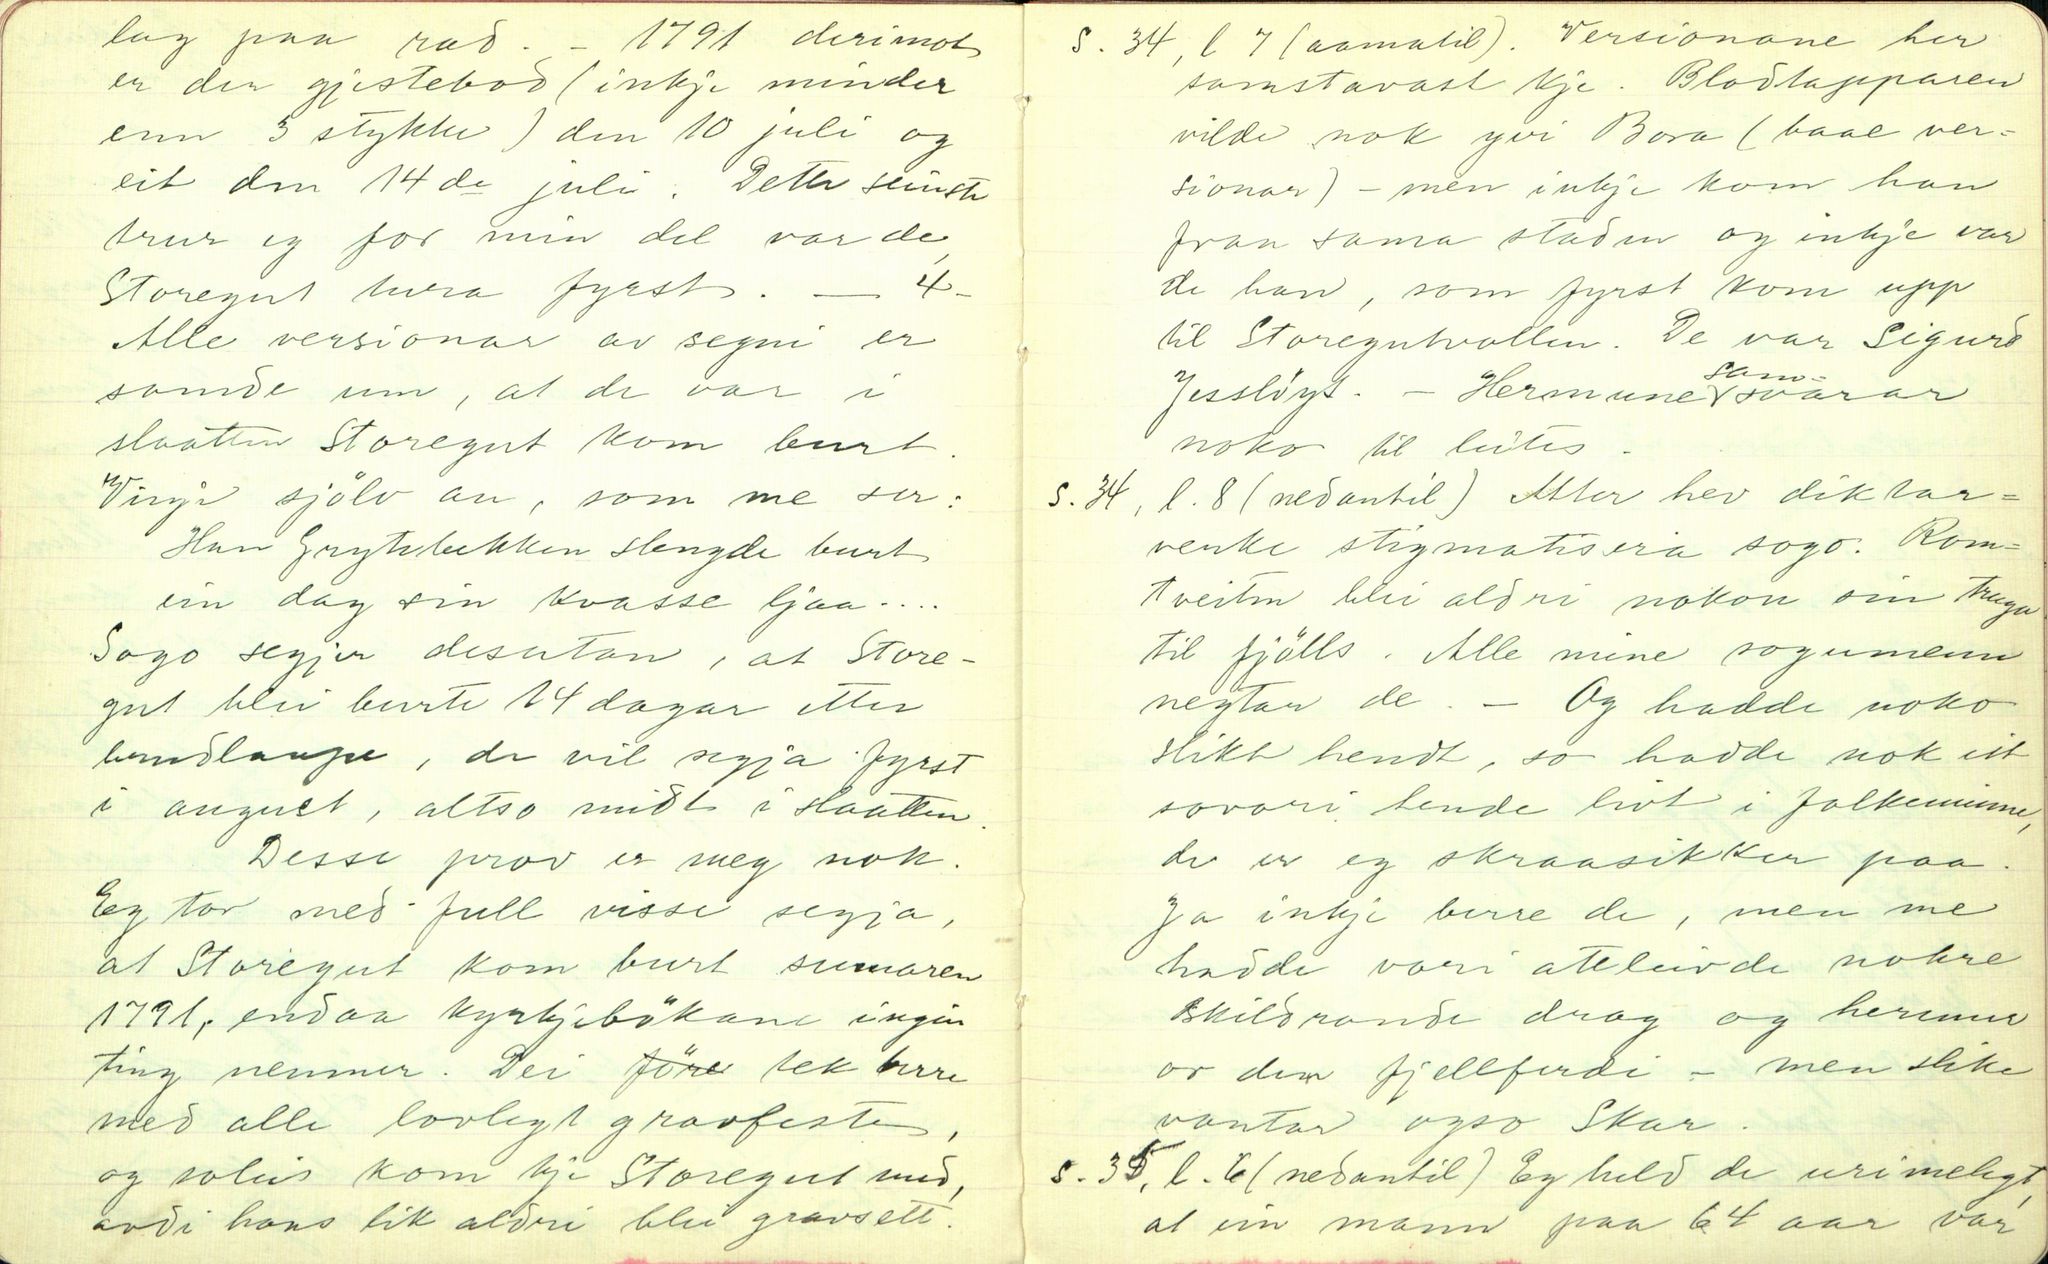 lag paa rad. – 1791 derimot
er der gjestebod (inkje minder
enn 3 stykke) den 10 juli og
eit den 14de juli. Dette seinste
trur eg for min del var de,
Storegut tura fyrst. — 4 –
Alle versionar av segni er
samde um, at de var i
slaatten Storegut kom burt.
Vinje sjölv au, som me ser:
Han Grytebekken slengde burt
ein dag sin kvasse ljaa....
Sogo segjer desutan, at Store-
gut blei burte 14 dagar etter
brudlaupe, de vil segja fyrst
i august, altso midt i slaatten.
Desse prov er meg nok.
Eg tor med full visse segja,
at Storegut kom burt sumaren
1791, endaa kyrkjebökane ingin
ting nemner. Dei före tek berre
med alle lovlegt gravfeste,
og soleis kom kje Storegut med,
avdi hans lik aldri blei gravsett.
S. 34, l 7 (aamatil). Versionane her
samstavast kje. Blodtapparen
vilde nok yvi Bora (baae ver=
sionar) – men inkje kom han
fraa sama staden og inkje var
de han, som fyrst kom upp
til Storegutvollen. De var Sigurd
Jesslöyt. – Hermune sam=
svarar
noko til leites.
S. 34, l. 8 (nedantil) Atter hev diktar=
verke stigmatisera sogo. Rom=
tveiten blei aldri nokon sin truga
til fjölls. Alle mine sogumenn
negtar de. – Og hadde noko
slikt hendt, so hadde nok eit
sovori hende livt i folkeminne,
de er eg skraasikker paa.
Ja inkje berre de, men me
hadde vori atleivde nokre
skildrande drag og herimur
or den fjellferdi – men slike
vantar ogso Skar.
S. 35, l. 6 (nedantil) Eg held de urimelegt,
at ein mann paa 64 aar var